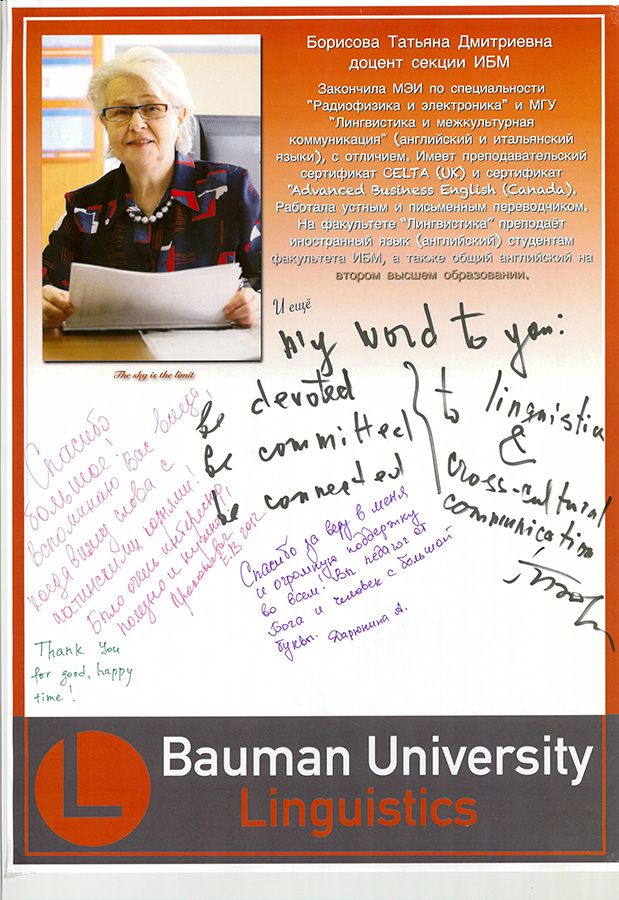 Борисова Татьяна Дмитриевна
доцент секции ИБМ
Закончила МЭИ по специальности
"Радиофизика и электроника" и МГУ
"Лингвистика и межкультурная
коммуникация" (английский и итальянский
языки), с отличием. Имеет преподавательский
сертификат CELTA (UK) и сертификат
"Advanced Business English (Canada).
Работала устным и письменным переводчиком.
На факультете "Лингвистика" преподаёт
иностранный язык (английский) студентам
факультета ИБМ, а также общий английский на
втором высшем образовании.
The sky is the limit
И ещё
my word to you:
be devoted
be committed
be connected
to linguistics
&
cross-cultural
communication
Спасибо
большое!
Вспоминаю Вас всегда,
когда вижу слова с
латинскими корнями!
Было очень интересно,
полезно и нужно!
2012
Спасибо за веру в меня
и огромную поддержку
во всем! Вы педагог от
Бога и человек с большой
буквы. Дарюнина А.
Thank you
for good, happy
time!
L
Bauman University
Linguistics